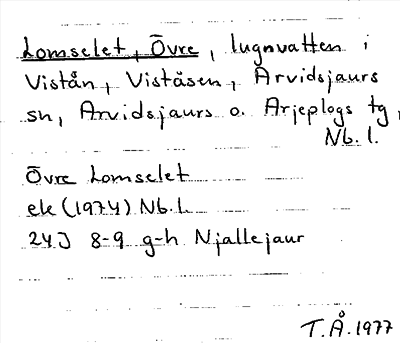 Lomselet, Övre, lugnvatten i
Vistån, Viståsen, Arvidsjaurs
sn, Arvidsjaurs o. Arjeplogs tg,
Nb. l.
Övre Lomselet
ek (1974) Nb. L
24J 8-9 g-h Njallejaur
T.Å. 1977